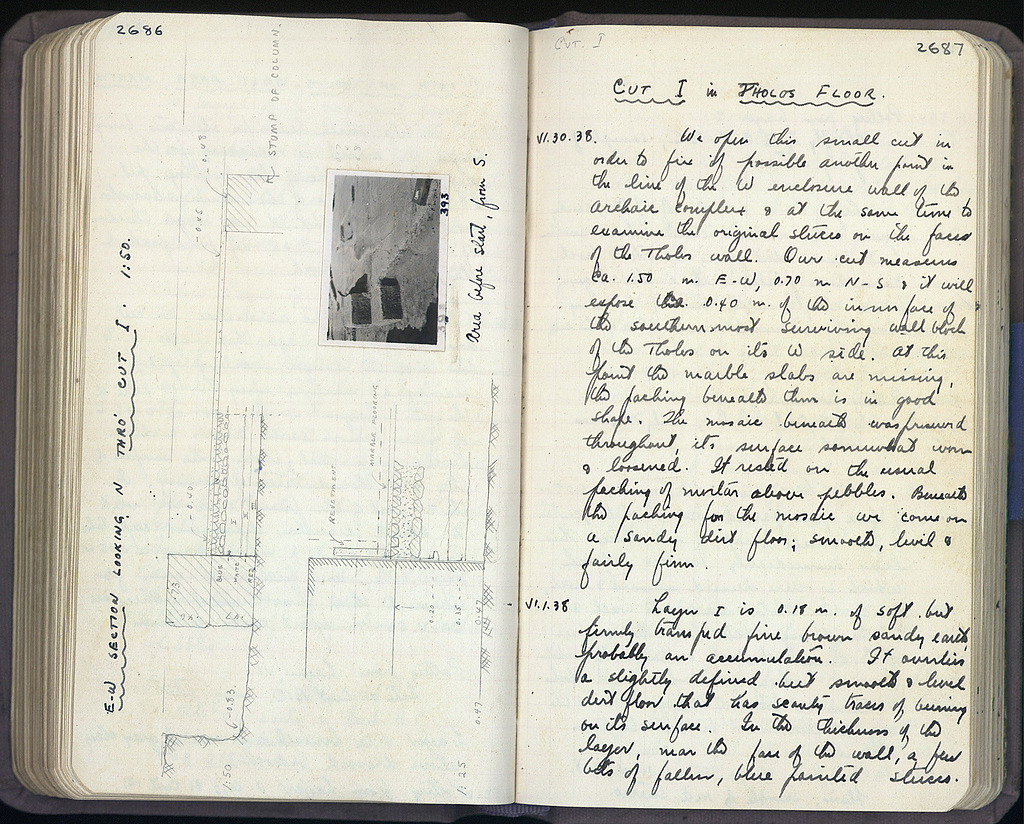 2686
E-W SECTION LOOKING N THRO' CUT I. 1:50.
STUMP OF COLUMN.
-0.48
-0.45
-0.40
BLUE
WHITE
RED
I
II
III
-.73
-0.83
1:50
393
Area before start, from S.
MARBLE FLOORING
REVETMENT
0.20
0.47
0.47
1:25
Cut. I
2687
CUT I in THOLOS FLOOR.
VI.30.38. We open this small cut in
order to fix if possible another point in
the line of the W enclosure wall of the
archaic complex & at the same time to
examine the original stucco on the faces
of the Tholos wall. Our cut measures
ca. 1.50 m. E-W, 0.70 m N-S & it will
expose 0.40 m. of the inner face of
the southernmost surviving wall block
of the Tholos on its W side. At this
point the marble slabs are missing,
the packing beneath them is in good
shape. The mosaic beneath was preserved
throughout, its surface somewhat worn
& loosened. It rested on the usual
packing of mortar above pebbles. Beneath
the packing for the mosaic we come on
a sandy dirt floor; smooth, level &
fairly firm.
VI.1.38 Layer I is 0.18 m. of soft but
firmly tramped fine brown sandy earth,
probably an accumulation. It overlies
a slightly defined but smooth & level
dirt floor that has scanty traces of burning
on its surface. In the thickness of the
layer, near the face of the wall, a few
bits of fallen, blue painted stucco.